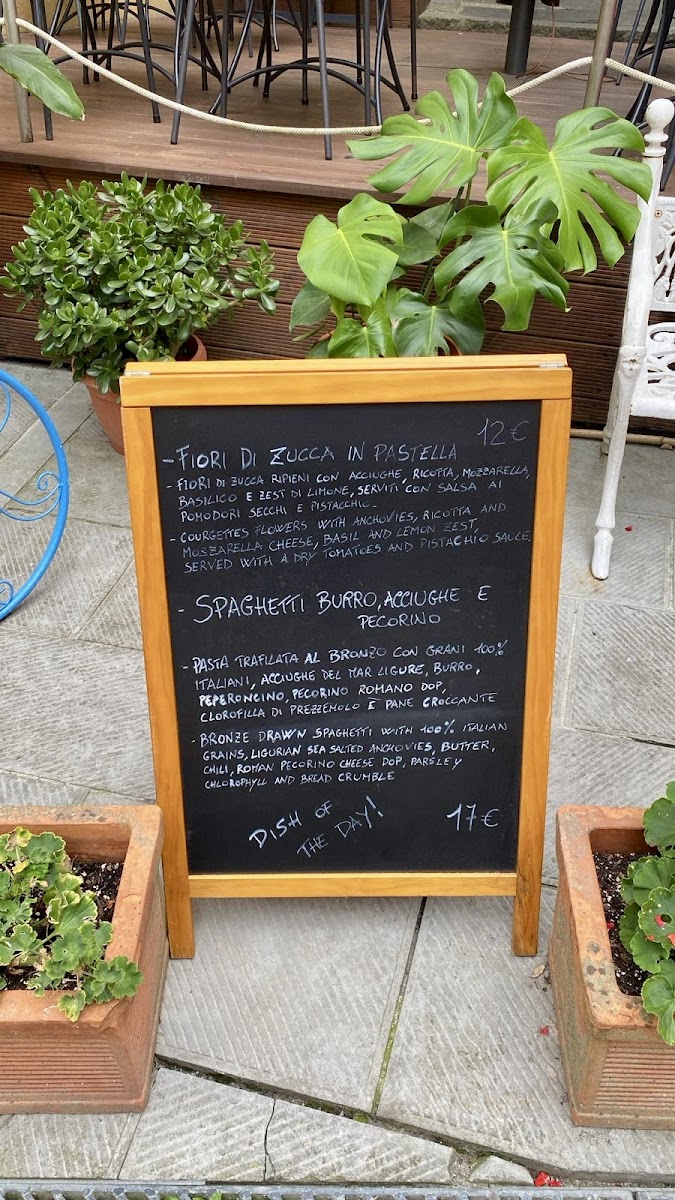 12€
- FIORI DI ZUCCA IN PASTELLA
- FIORI DI ZUCCA RIPIENI CON ACCIUGHE, RICOTTA, MOZZARELLA,
BASILICO E ZEST DI LIMONE, SERVITI CON SALSA AI
POMODORI SECCHI E PISTACCHIO.
- COURGETTES FLOWERS WITH ANCHOVIES, RICOTTA AND
MOZZARELLA CHEESE, BASIL AND LEMON ZEST,
SERVED WITH A DRY TOMATOES AND PISTACHIO SAUCE
- SPAGHETTI BURRO, ACCIUGHE E
PECORINO
- PASTA TRAFILATA AL BRONZO CON GRANI 100%
ITALIANI, ACCIUGHE DEL MAR LIGURE, BURRO,
PEPERONCINO, PECORINO ROMANO DOP,
CLOROFILLA DI PREZZEMOLO E PANE CROCCANTE
- BRONZE DRAWN SPAGHETTI WITH 100% ITALIAN
GRAINS, LIGURIAN SEA SALTED ANCHOVIES, BUTTER,
CHILI, ROMAN PECORINO CHEESE DOP, PARSLEY
CHLOROPHYLL AND BREAD CRUMBLE
DISH OF
THE DAY!
17€